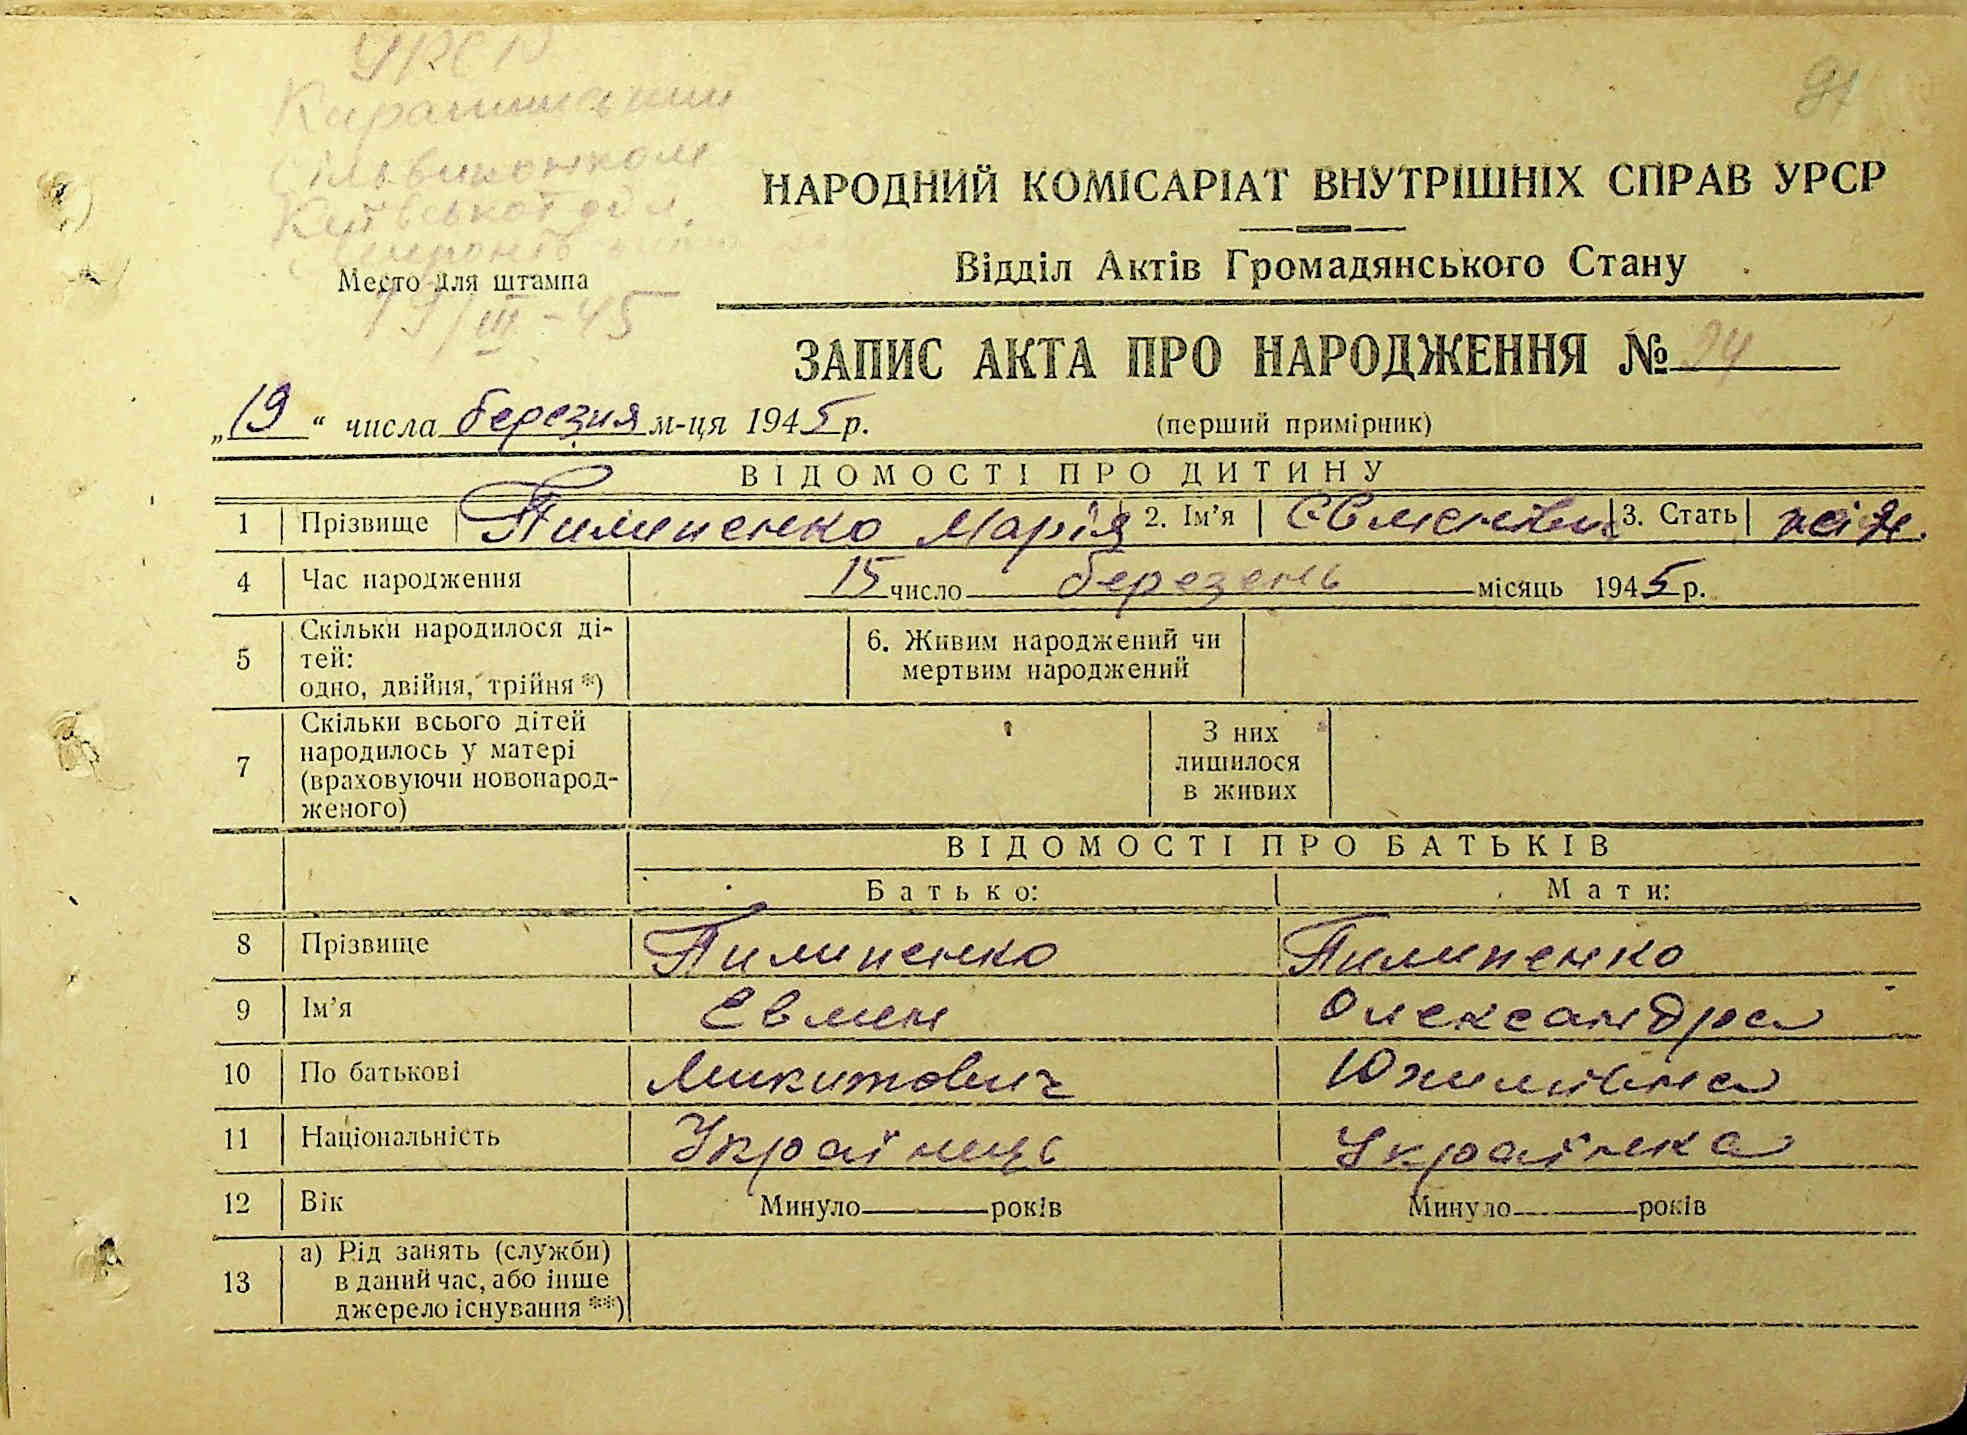 УРСР
Карапишський
сільвиконком
Київської обл.
91
НАРОДНИЙ КОМІСАРІАТ ВНУТРІШНІХ СПРАВ УРСР
Відділ Актів Громадянського Стану
Место для штампа
19/III-45
ЗАПИС АКТА ПРО НАРОДЖЕННЯ № 24
„19“ числа березня м-ця 1945 р. (перший примірник)
ВІДОМОСТІ ПРО ДИТИНУ
1 Прізвище Пилипенко Марія 2. Ім’я 3. Стать жін.
4 Час народження 15 число березень місяць 1945 р.
5 Скільки народилося ді-
тей:
одно, двійня, трійня *)
6. Живим народжений чи
мертвим народжений
7 Скільки всього дітей
народилось у матері
(враховуючи новонарод-
женого)
З них
лишилося
в живих
ВІДОМОСТІ ПРО БАТЬКІВ
Батько: Мати:
8 Прізвище Пилипенко Пилипенко
9 Ім’я Евмен Олександра
10 По батькові Микитович Юхимівна
11 Національність Українець Українка
12 Вік Минуло років Минуло років
13 а) Рід занять (служби)
в даний час, або інше
джерело існування **)